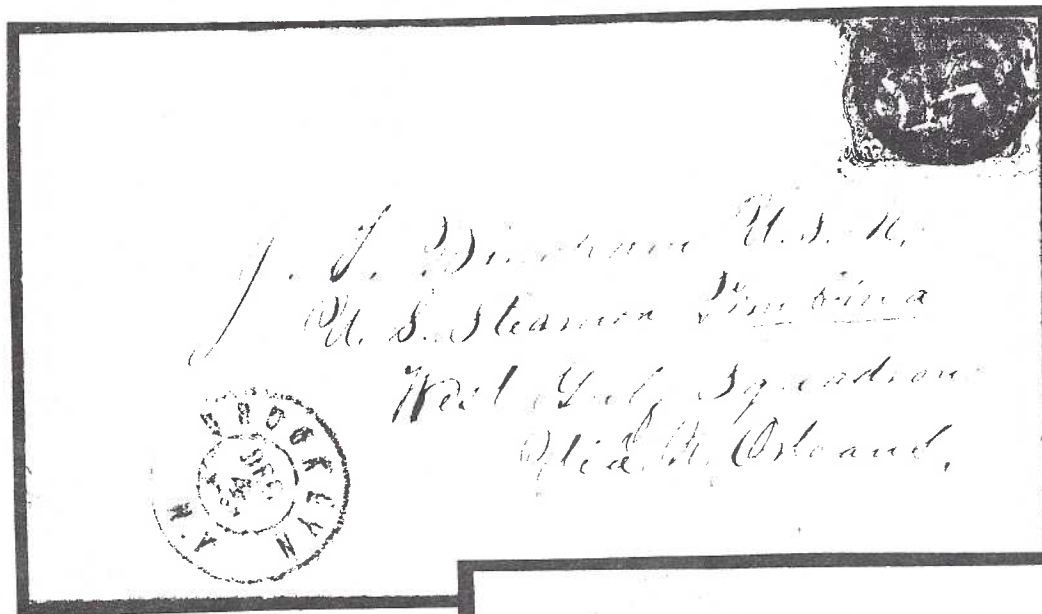 J. S. Bingham U.S.N.
U.S. Steamer Pembina
West Gulf Squadron
Via. N. Orleans.
BROOKLYN N.Y.
DEC